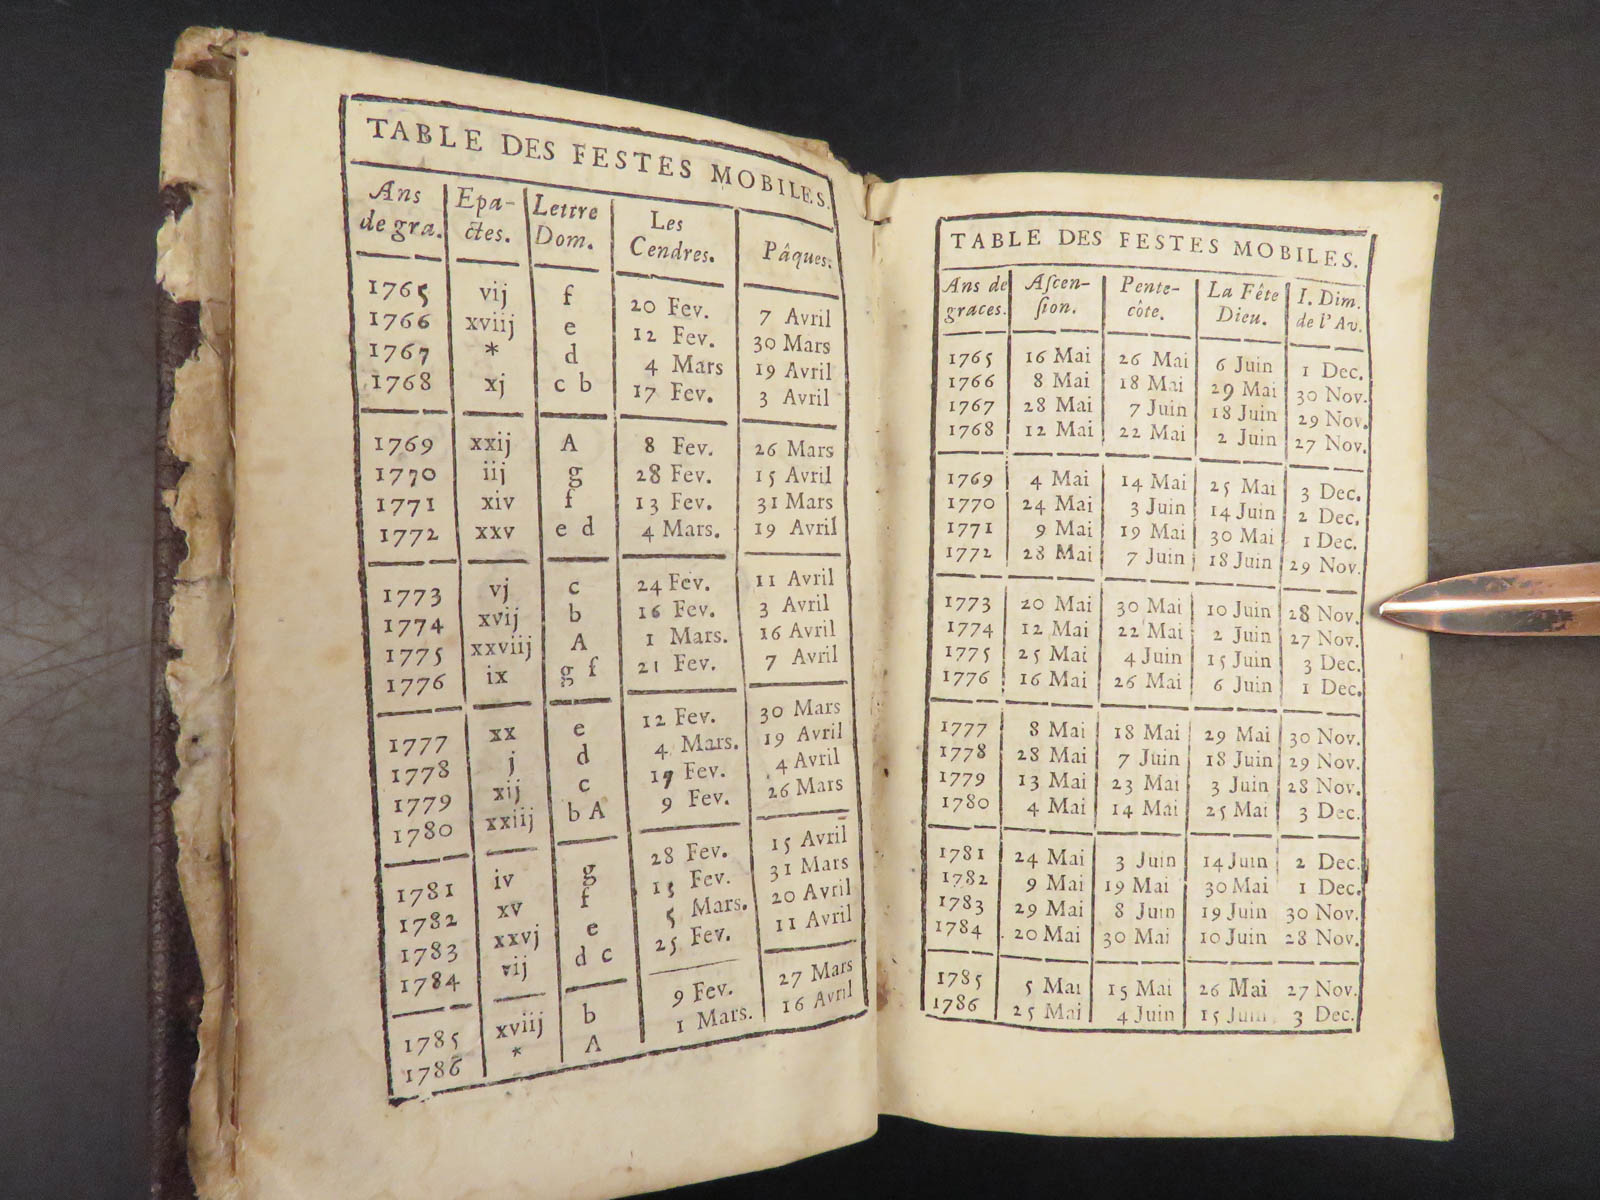 TABLE DES FESTES MOBILES.
Ans de gra. Epa-ctes. Lettre Dom. Les Cendres. Pâques.
1765 vij f 20 Fev. 7 Avril
1766 xviij e 12 Fev. 30 Mars
1767 * d 4 Mars 19 Avril
1768 xj c b 17 Fev. 3 Avril
1769 xxij A 8 Fev. 26 Mars
1770 iij g 28 Fev. 15 Avril
1771 xiv f 13 Fev. 31 Mars
1772 xxv e d 4 Mars. 19 Avril
1773 vj c 24 Fev. 11 Avril
1774 xvij b 16 Fev. 3 Avril
1775 xxviij A 1 Mars. 16 Avril
1776 ix g f 21 Fev. 7 Avril
1777 xx e 12 Fev. 30 Mars
1778 j d 4 Mars. 19 Avril
1779 xij c 17 Fev. 4 Avril
1780 xxiij b A 9 Fev. 26 Mars
1781 iv g 28 Fev. 15 Avril
1782 xv f 13 Fev. 31 Mars
1783 xxvj e 5 Mars. 20 Avril
1784 vij d c 25 Fev. 11 Avril
1785 xviij b 9 Fev. 27 Mars
1786 * A 1 Mars. 16 Avril
TABLE DES FESTES MOBILES.
Ans de graces. Ascen-sion. Pente-côte. La Fête Dieu. I. Dim. de l'Av.
1765 16 Mai 26 Mai 6 Juin 1 Dec.
1766 8 Mai 18 Mai 29 Mai 30 Nov.
1767 28 Mai 7 Juin 18 Juin 29 Nov.
1768 12 Mai 22 Mai 2 Juin 27 Nov.
1769 4 Mai 14 Mai 25 Mai 3 Dec.
1770 24 Mai 3 Juin 14 Juin 2 Dec.
1771 9 Mai 19 Mai 30 Mai 1 Dec.
1772 28 Mai 7 Juin 18 Juin 29 Nov.
1773 20 Mai 30 Mai 10 Juin 28 Nov.
1774 12 Mai 22 Mai 2 Juin 27 Nov.
1775 25 Mai 4 Juin 15 Juin 3 Dec.
1776 16 Mai 26 Mai 6 Juin 1 Dec.
1777 8 Mai 18 Mai 29 Mai 30 Nov.
1778 28 Mai 7 Juin 18 Juin 29 Nov.
1779 13 Mai 23 Mai 3 Juin 28 Nov.
1780 4 Mai 14 Mai 25 Mai 3 Dec.
1781 24 Mai 3 Juin 14 Juin 2 Dec.
1782 9 Mai 19 Mai 30 Mai 1 Dec.
1783 29 Mai 8 Juin 19 Juin 30 Nov.
1784 20 Mai 30 Mai 10 Juin 28 Nov.
1785 5 Mai 15 Mai 26 Mai 27 Nov.
1786 25 Mai 4 Juin 15 Juin 3 Dec.